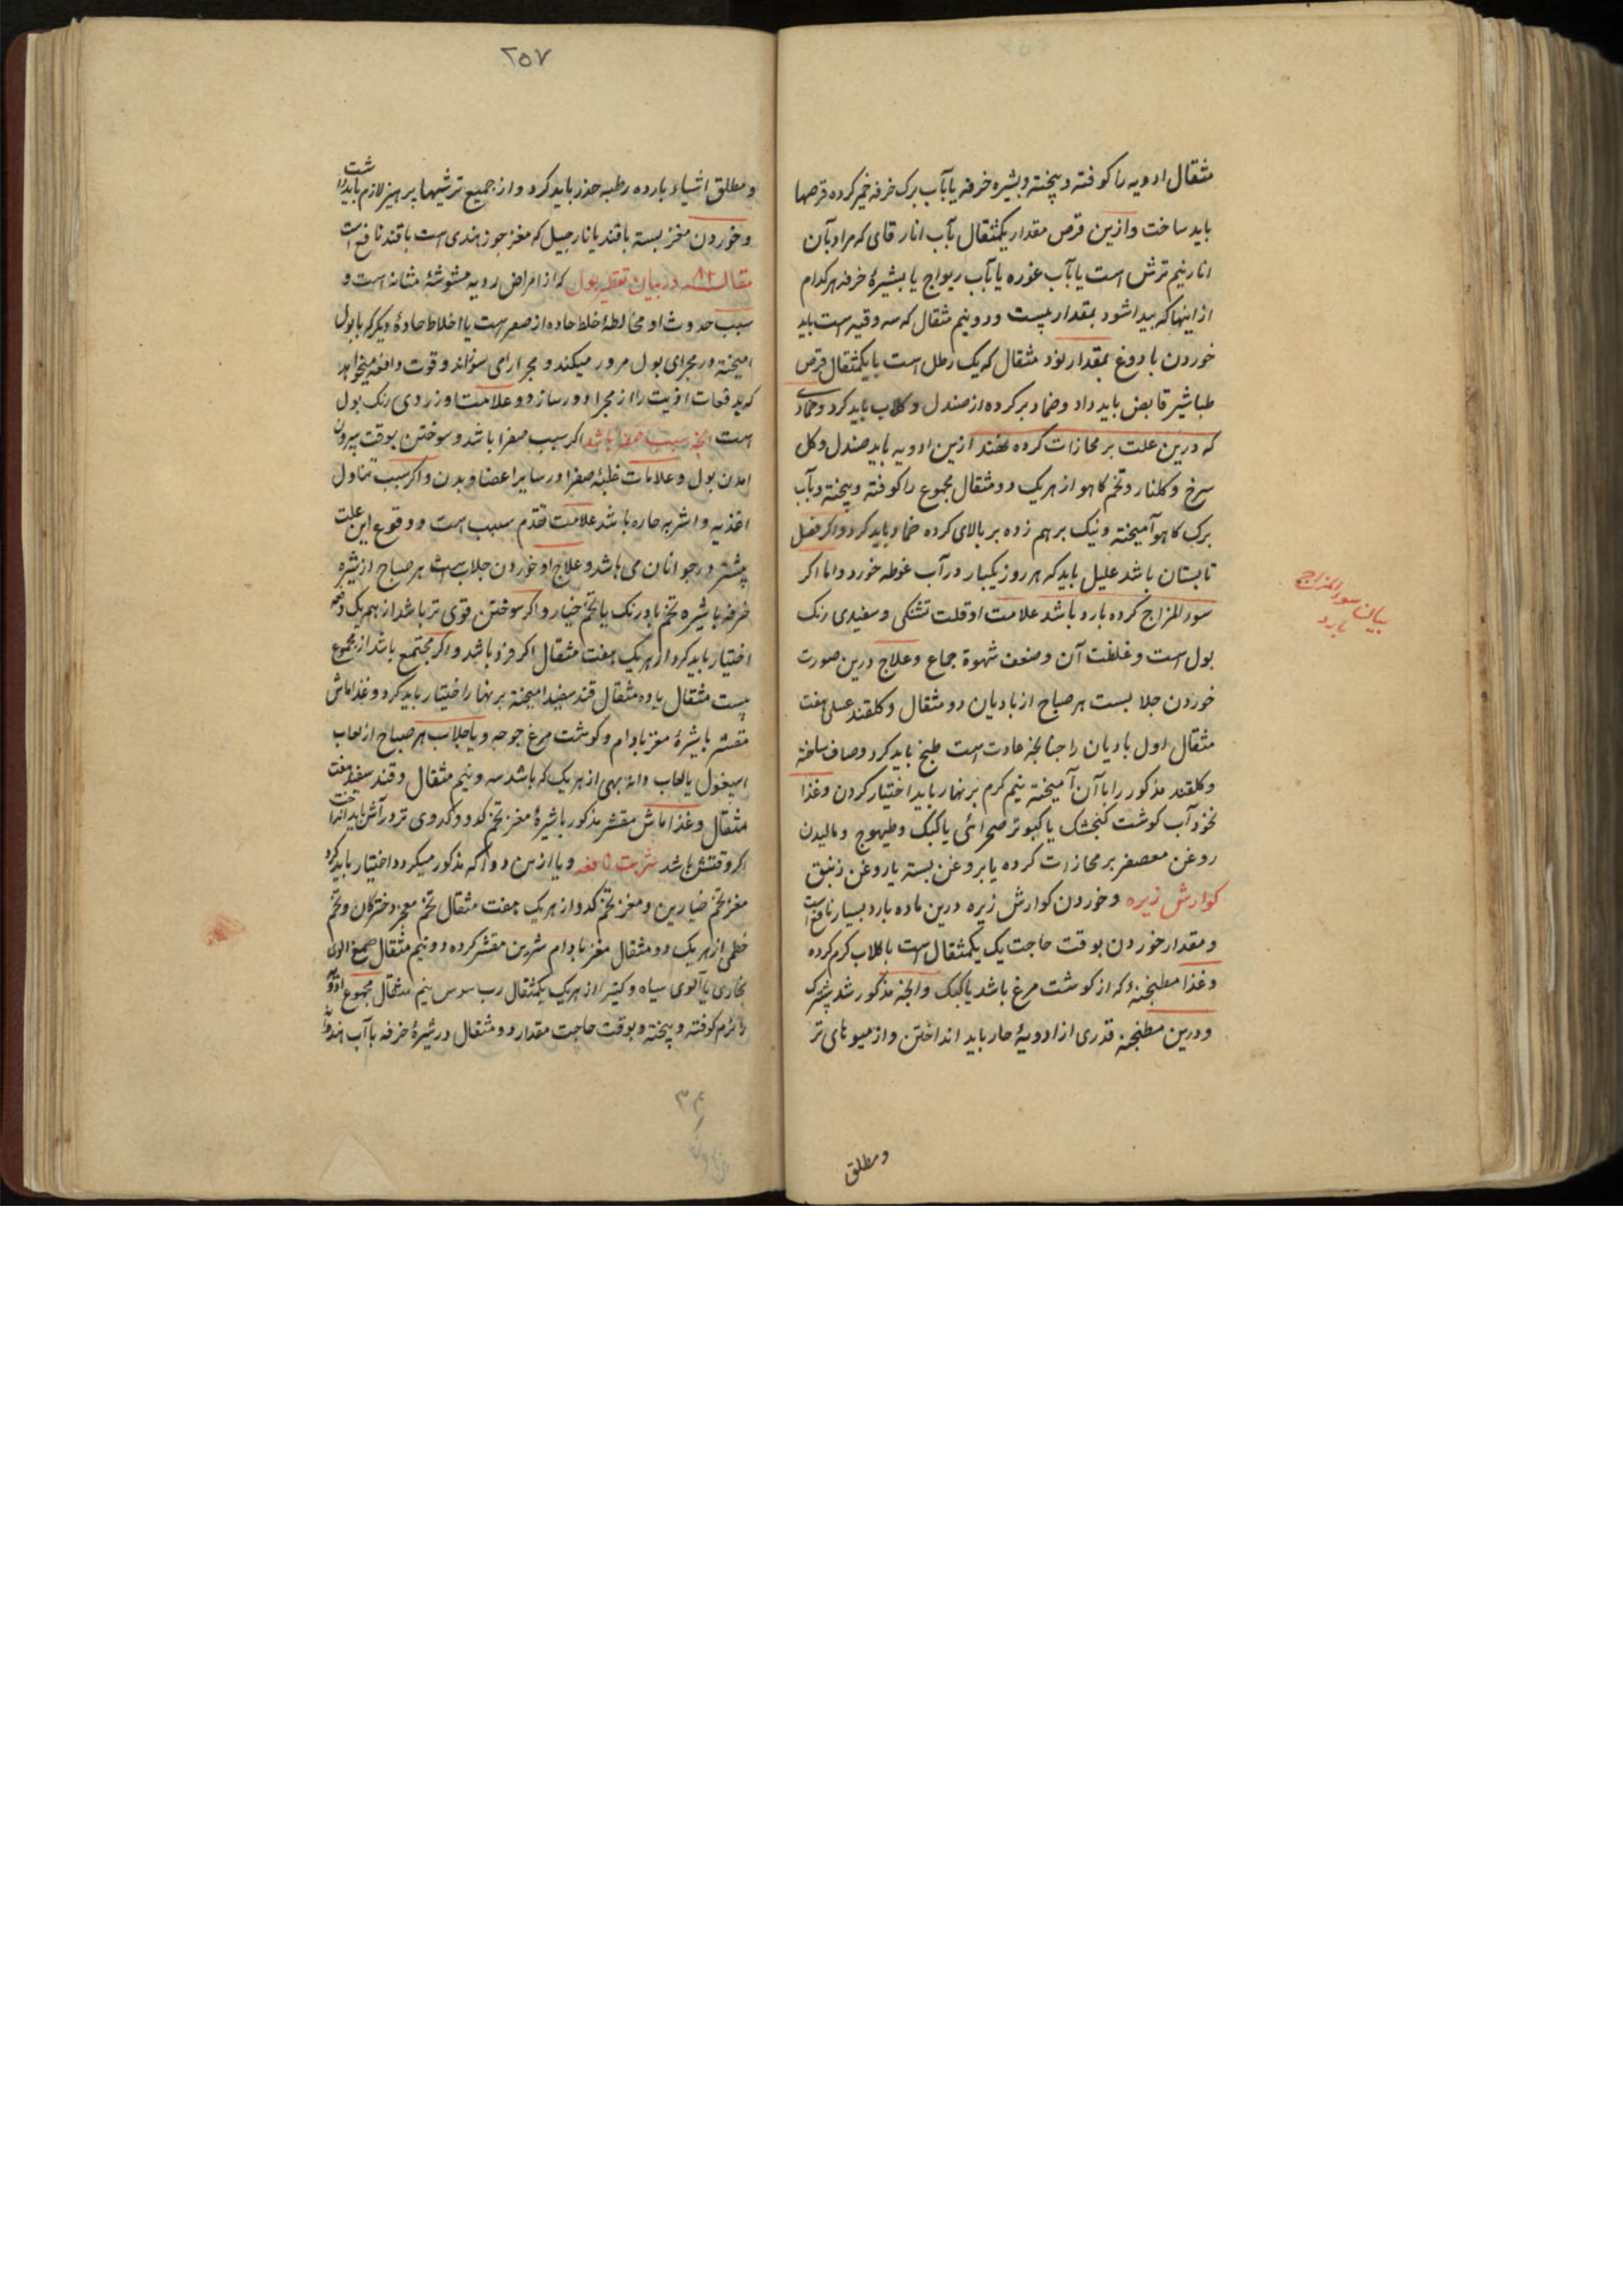 مثقال ادویه را کوفته و پیخته و بشیره خرفه یا بآب برک خرفه خمیر کرده قرصها
باید ساخت و ازین قرص مقدار یکمثقال بآب انار قای که مراد بآن
انار نیم ترش است یا بآب غوره یا بآب ریواج یا بشیرهٔ خرفه هر کدام
از اینها که پیدا شود بمقدار بیست و دو نیم مثقال که سه وقیه است باید
خوردن با دوغ بمقدار نود مثقال که یک رطل است با یکمثقال قرص
طباشیر قابض باید داد و ضماد بر کرده از صندل و کلاب باید کرد و ضمادی
که درین علت بر محازات کرده نهند ازین ادویه باید صندل و کل
سرخ و کلنار و تخم کاهو از هر یک دو مثقال مجموع را کوفته و پیخته و بآب
برک کاهو آمیخته و نیک بر هم زده بر بالای کرده ضماد باید کرد و اکر فصل
تابستان باشد علیل باید که هر روز یکبار در آب غوطه خورد و اما اکر
سوء المزاج کرده بارد باشد علامت او قلت تشنکی و سفیدی رنک
بیان سوء المزاج
بارد
بول است و غلظت آن و ضعف شهوة جماع و علاج درین صورت
خوردن جلابست هر صباح از بادیان دو مثقال و کلقند عسلی هفت
مثقال اول بادیان را چنانچه عادت است طبخ باید کرد و صاف ساخته
و کلقند مذکور را با آن آمیخته نیم کرم بر نهار باید اختیار کردن و غذا
نخود آب کوشت کنجشک یا کبوتر صحرائی یا کبک و طیهوج و مالیدن
روغن معصفر بر محازات کرده یا بروغن پسته یا روغن زنبق
کوارش زیره و خوردن کوارش زیره درین ماده بارد بسیار نافع است
و مقدار خوردن بوقت حاجت یک یکمثقال است با کلاب کرم کرده
و غذا مطنجنه که از کوشت مرغ باشد یا کبک و انچه مذکور شد پیشترک
و درین مطنجنه قدری از ادویهٔ حار باید انداختن و از میوهای تر
و مطلق
۲۵۷
و مطلق اشیاء بارده رطبه حذر باید کرد و از جمیع ترشیها پرهیز لازم باید داشت
و خوردن مغز پسته با قند یا نارجیل که مغز جوز هندی است با قند نافع است
مقاله ۸۲ در بیان تقطیر بول که از امراض ردیه مشوشهٔ مثانه است و
سبب حدوث او مخالطهٔ اخلط حاده از صفر است یا اخلاط حادهٔ دیکر که با بول
امیخته در مجرای بول مرور میکند و مجرا را می سوزاند و قوت دافعه میخواهد
که بدفعات اذیت را از مجرا دور سازد و علامت او زردی رنک بول
است انچه سبب صفرا باشد اکر سبب صفرا باشد و سوختن بوقت بیرون
امدن بول و علامات غلبهٔ صفرا در سایر اعضا و بدن و اکر سبب تناول
اغذیه و اشربه حاره باشد علامت تقدم سبب است و وقوع این علت
پیشتر در جوانان می باشد و علاج او خوردن جلاب است هر صباح از شیره
خرفه با شیره تخم بادرنک یا تخم خیار و اکر سوختن قوی تر باشد از هر یک
اختیار باید کرد از هر یک هفت مثقال اکر فرد باشد و اکر مجتمع باشد از مجموع
بیست مثقال با ده مثقال قند سفید امیخته بر نهار اختیار باید کرد و غذا ماش
مقشر با شیرهٔ مغز بادام و کوشت مرغ جوجه و یا جلاب هر صباح از لعاب
اسپغول یا لعاب دانهٔ بهی از هر یک که باشد سه و نیم مثقال و قند سفید هفت
مثقال و غذا ماش مقشر مذکور با شیرهٔ مغز تخم کدو و کدوی تر در آش باید انداخت
اکر وقتش باشد شربت نافعه و یا ازین دوا که مذکور میکردد اختیار باید کرد
مغز تخم خیارین و مغز تخم کدو از هر یک هفت مثقال تخم معجر دخترکان و تخم
خطمی از هر یک دو مثقال مغز بادام شیرین مقشر کرده دو نیم مثقال صمغ الوی
بخاری یا آلوی سیاه و کتیرا از هر یک یکمثقال رب سوس نیم مثقال مجموع ادویه
را نرم کوفته و پیخته و بوقت حاجت مقدار دو مثقال در شیرهٔ خرفه یا آب هندوانه